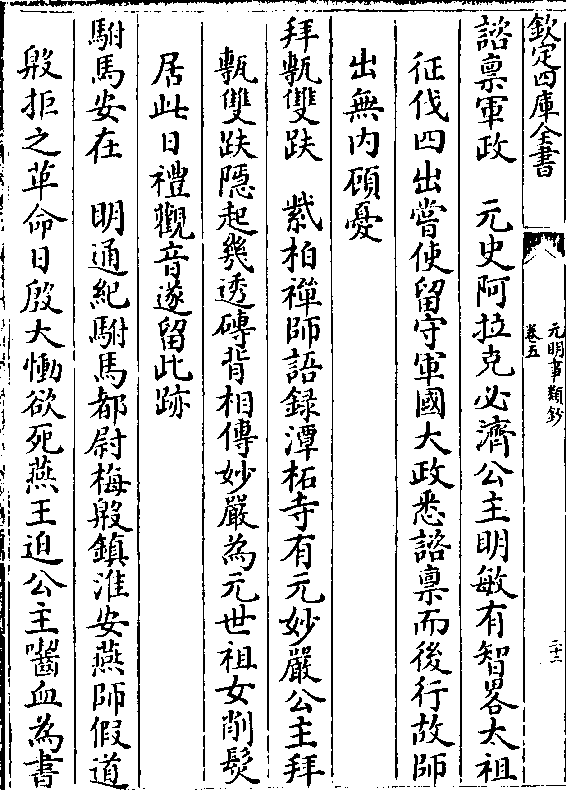 欽定四庫全書
元明事類鈔
卷五
二十二
諮禀軍政　元史阿拉克必濟公主明敏有智畧太祖
征伐四出嘗使留守軍國大政悉諮禀而後行故師
出無内顧憂
拜甎雙趺　紫柏禪師語録潭柘寺有元妙嚴公主拜
甎雙趺隱起幾透磚背相傳妙嚴為元世祖女削髮
居此日禮觀音遂留此跡
駙馬安在　明通紀駙馬都尉梅殷鎮淮安燕師假道
殷拒之革命日殷大慟欲死燕王迫公主嚙血為書